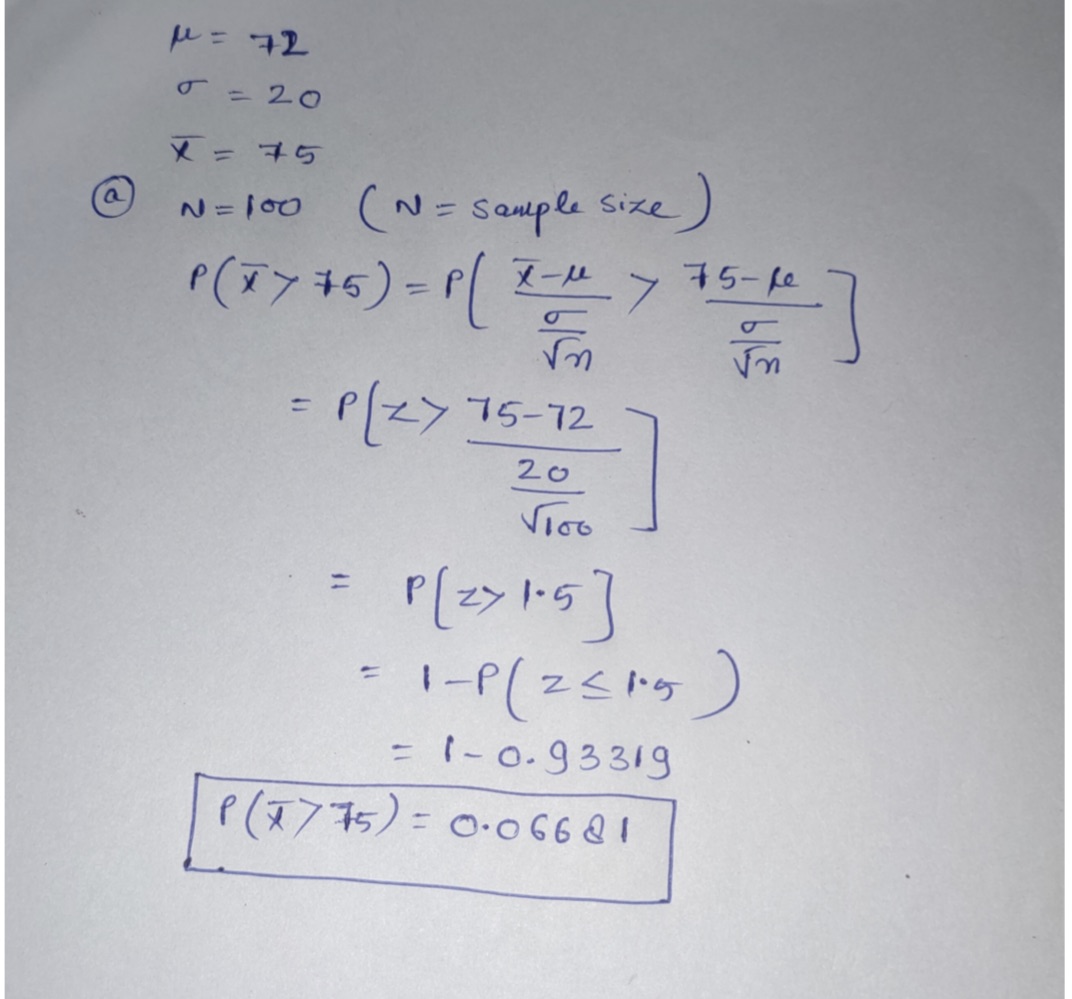 μ = 72
σ = 20
x̄ = 75
ⓐ N = 100 (N = sample size)
P(x̄ > 75) = P( (x̄-μ)/(σ/√n) > (75-μ)/(σ/√n) ]
= P[z > (75-72)/(20/√100) ]
= P[z > 1.5]
= 1-P(z ≤ 1.5)
= 1-0.93319
P(x̄ > 75) = 0.06681